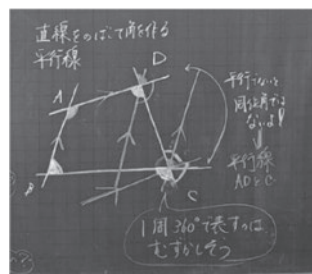 直線をのばして角を作る
平行線
D
A
平行でないと
同位角では
ないよ!
平行線
ADとC
B
C
1周360°で表すのは
むずかしそう